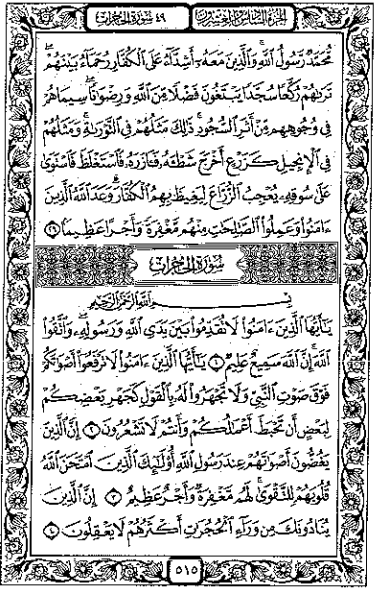 الجزء السادس والعشرون ٤٩ سورة الحجرات
مُّحَمَّدٌ رَّسُولُ ٱللَّهِ وَٱلَّذِينَ مَعَهُۥٓ أَشِدَّآءُ عَلَى ٱلْكُفَّارِ رُحَمَآءُ بَيْنَهُمْ
تَرَىٰهُمْ رُكَّعًا سُجَّدًا يَبْتَغُونَ فَضْلًا مِّنَ ٱللَّهِ وَرِضْوَٰنًا سِيمَاهُمْ
فِى وُجُوهِهِم مِّنْ أَثَرِ ٱلسُّجُودِ ذَٰلِكَ مَثَلُهُمْ فِى ٱلتَّوْرَىٰةِ وَمَثَلُهُمْ
فِى ٱلْإِنجِيلِ كَزَرْعٍ أَخْرَجَ شَطْـَٔهُۥ فَـَٔازَرَهُۥ فَٱسْتَغْلَظَ فَٱسْتَوَىٰ
عَلَىٰ سُوقِهِۦ يُعْجِبُ ٱلزُّرَّاعَ لِيَغِيظَ بِهِمُ ٱلْكُفَّارَ وَعَدَ ٱللَّهُ ٱلَّذِينَ
ءَامَنُوا۟ وَعَمِلُوا۟ ٱلصَّـٰلِحَـٰتِ مِنْهُم مَّغْفِرَةً وَأَجْرًا عَظِيمًۢا ٢٩
سورة الحجرات
بِسْمِ ٱللَّهِ ٱلرَّحْمَـٰنِ ٱلرَّحِيمِ
يَـٰٓأَيُّهَا ٱلَّذِينَ ءَامَنُوا۟ لَا تُقَدِّمُوا۟ بَيْنَ يَدَىِ ٱللَّهِ وَرَسُولِهِۦ وَٱتَّقُوا۟
ٱللَّهَ إِنَّ ٱللَّهَ سَمِيعٌ عَلِيمٌ ١ يَـٰٓأَيُّهَا ٱلَّذِينَ ءَامَنُوا۟ لَا تَرْفَعُوٓا۟ أَصْوَٰتَكُمْ
فَوْقَ صَوْتِ ٱلنَّبِىِّ وَلَا تَجْهَرُوا۟ لَهُۥ بِٱلْقَوْلِ كَجَهْرِ بَعْضِكُمْ
لِبَعْضٍ أَن تَحْبَطَ أَعْمَـٰلُكُمْ وَأَنتُمْ لَا تَشْعُرُونَ ٢ إِنَّ ٱلَّذِينَ
يَغُضُّونَ أَصْوَٰتَهُمْ عِندَ رَسُولِ ٱللَّهِ أُو۟لَـٰٓئِكَ ٱلَّذِينَ ٱمْتَحَنَ ٱللَّهُ
قُلُوبَهُمْ لِلتَّقْوَىٰ لَهُم مَّغْفِرَةٌ وَأَجْرٌ عَظِيمٌ ٣ إِنَّ ٱلَّذِينَ
يُنَادُونَكَ مِن وَرَآءِ ٱلْحُجُرَٰتِ أَكْثَرُهُمْ لَا يَعْقِلُونَ ٤
٥١٥